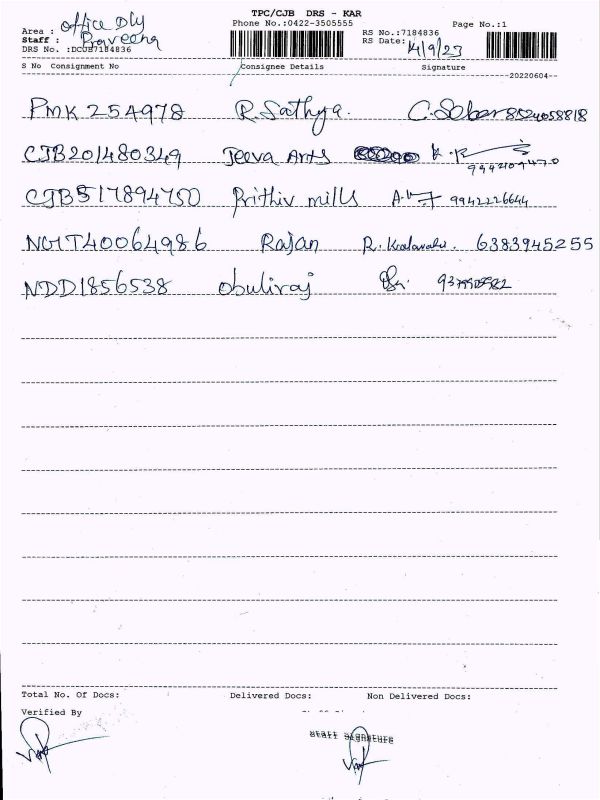 TPC/CJB DRS - KAR
Phone No.:0422-3505555
Page No.:1
Area : office Dly
Staff : Praveena
DRS No. :DCOB7184836
RS No.:7184836
RS Date: 14/9/23
S No Consignment No Consignee Details Signature
20220604
PMK 254978 R. Sathya. 8524058818
CJB201480349 Jeeva Arts 9942109470
CJB517894750 Prithiv mills 9942226644
NGIT40064986 Rajan 6383945255
NDD1856538 obuliraj
Total No. Of Docs: Delivered Docs: Non Delivered Docs:
Verified By
Staff Signature